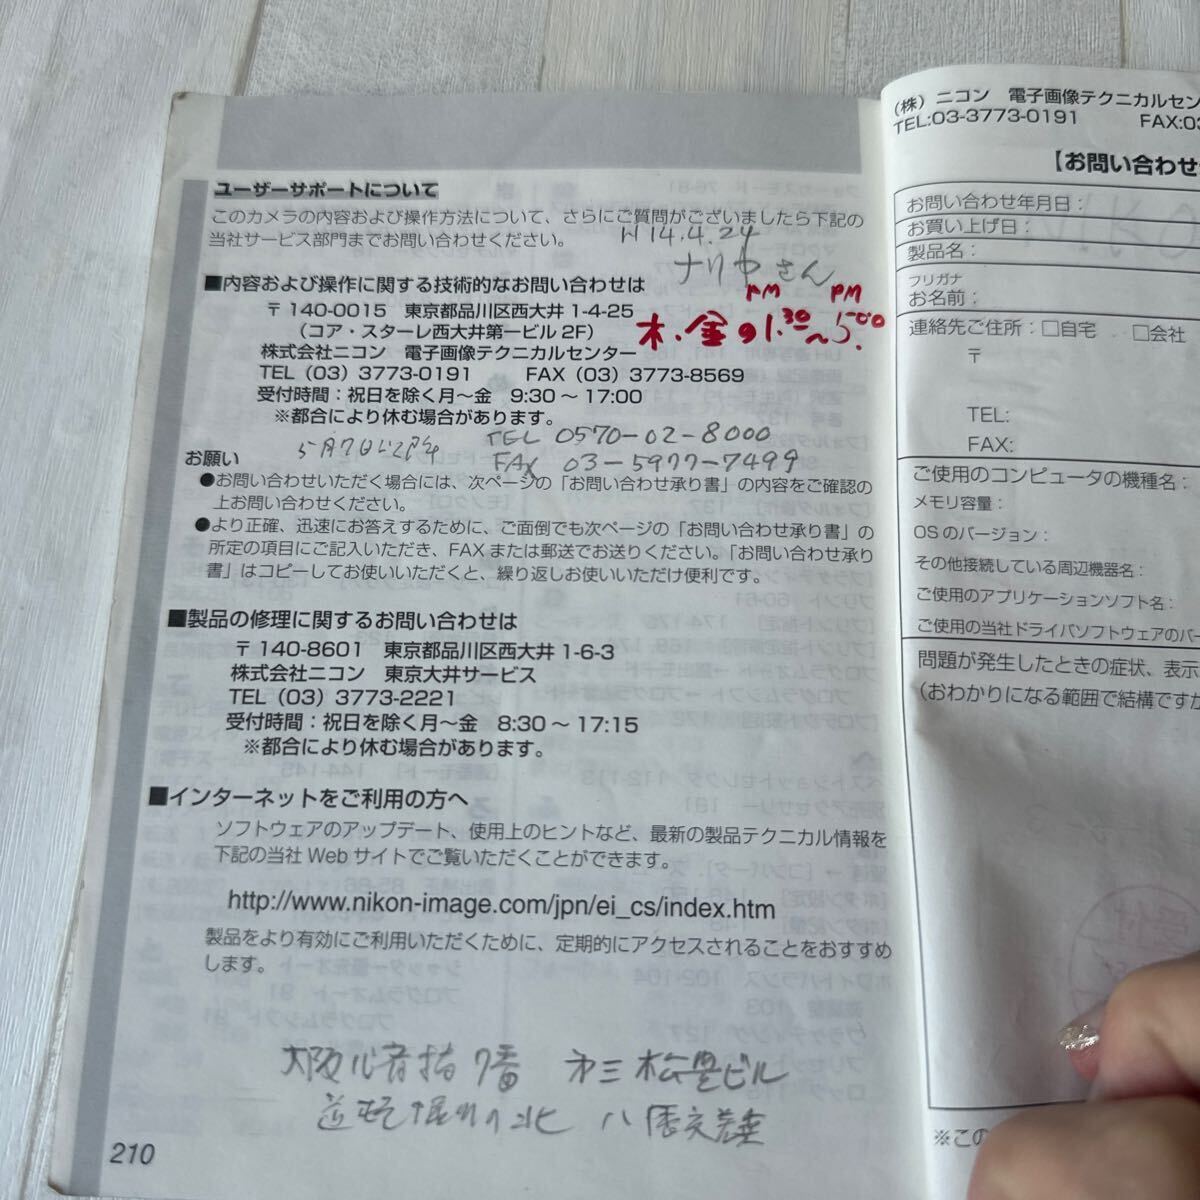 ユーザーサポートについて
このカメラの内容および操作方法について、さらにご質問がございましたら下記の
当社サービス部門までお問い合わせください。
H14.4.24
さん
■内容および操作に関する技術的なお問い合わせは
〒140-0015 東京都品川区西大井 1-4-25
（コア・スターレ西大井第一ビル 2F）
PM PM
木.金の1.30〜5.00
株式会社ニコン 電子画像テクニカルセンター
TEL（03）3773-0191 FAX（03）3773-8569
受付時間：祝日を除く月〜金 9:30 〜 17:00
※都合により休む場合があります。
TEL 0570-02-8000
5月7日以降
FAX 03-5977-7499
お願い
●お問い合わせいただく場合には、次ページの「お問い合わせ承り書」の内容をご確認の
上お問い合わせください。
●より正確、迅速にお答えするために、ご面倒でも次ページの「お問い合わせ承り書」の
所定の項目にご記入いただき、FAX または郵送でお送りください。「お問い合わせ承り
書」はコピーしてお使いいただくと、繰り返しお使いいただけ便利です。
■製品の修理に関するお問い合わせは
〒140-8601 東京都品川区西大井 1-6-3
株式会社ニコン 東京大井サービス
TEL（03）3773-2221
受付時間：祝日を除く月〜金 8:30 〜 17:15
※都合により休む場合があります。
■インターネットをご利用の方へ
ソフトウェアのアップデート、使用上のヒントなど、最新の製品テクニカル情報を
下記の当社 Web サイトでご覧いただくことができます。
http://www.nikon-image.com/jpn/ei_cs/index.htm
製品をより有効にご利用いただくために、定期的にアクセスされることをおすすめ
します。
大阪心斎橋 7番 ビル
の北
210
（株）ニコン 電子画像テクニカルセン
TEL:03-3773-0191 FAX:03
【お問い合わせ
お問い合わせ年月日：
お買い上げ日：
製品名：
フリガナ
お名前：
連絡先ご住所：□自宅 □会社
〒
TEL:
FAX:
ご使用のコンピュータの機種名：
メモリ容量：
OSのバージョン：
その他接続している周辺機器名：
ご使用のアプリケーションソフト名：
ご使用の当社ドライバソフトウェアのバー
問題が発生したときの症状、表示
（おわかりになる範囲で結構ですか
※この